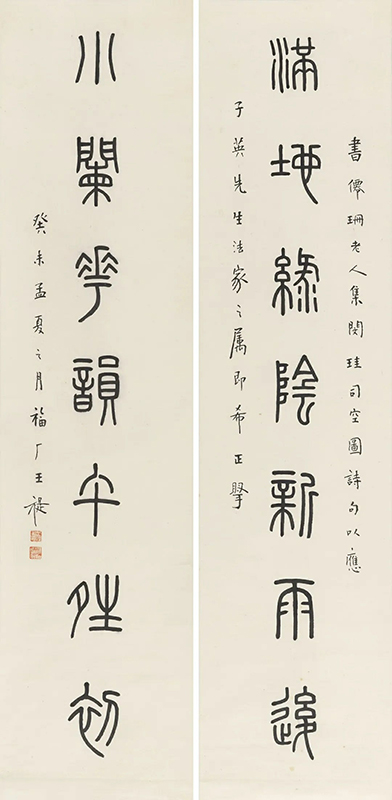 書僊珊老人集閔珪司空圖詩句以應
滿地綠陰新雨後
子英先生法家之属即希正
小闌華韻午夝初
癸未孟夏之月福厂王禔